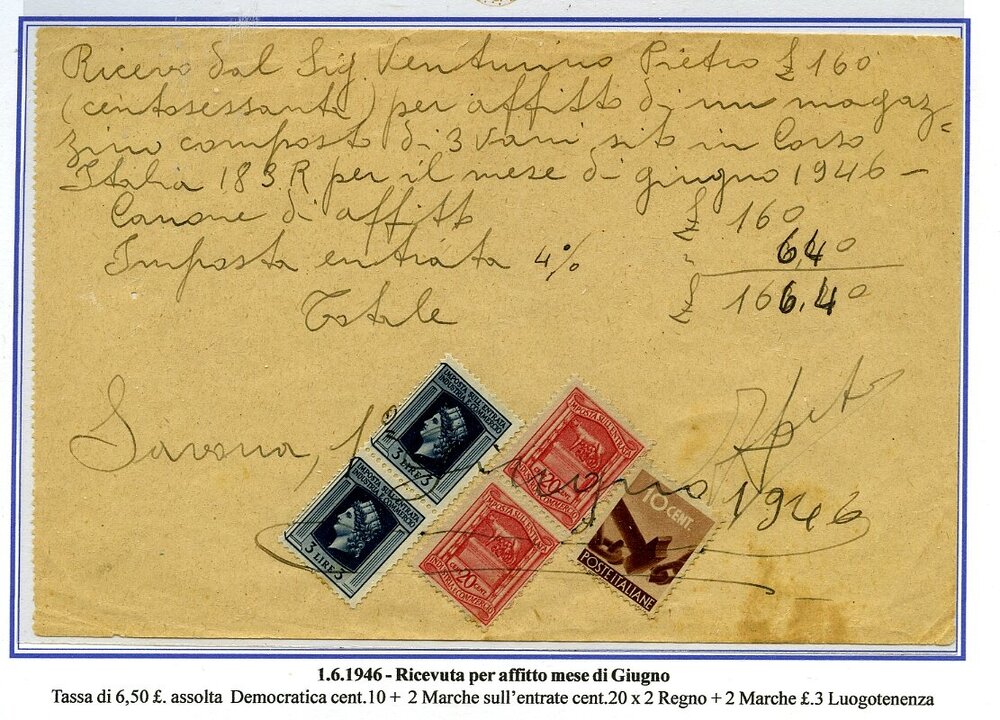 Ricevo dal Sig Venturino Pietro £ 160
(centosessanta) per affitto di un magaz=
zino composto di 3 vani sito in Corso
Italia 183 R per il mese di giugno 1946 –
Canone di affitto £ 160
Imposta entrata 4% " 6,40
Totale £ 166,40
Savona, 1 giugno 1946
IMPOSTA SULL'ENTRATA
INDUSTRIA E COMMERCIO
3 LIRE 3
IMPOSTA SULL'ENTRATA
INDUSTRIA E COMMERCIO
3 LIRE 3
IMPOSTA SULL'ENTRATA
CENT 20 CENT
INDUSTRIA E COMMERCIO
IMPOSTA SULL'ENTRATA
CENT 20 CENT
INDUSTRIA E COMMERCIO
10 CENT.
POSTE ITALIANE
1.6.1946 - Ricevuta per affitto mese di Giugno
Tassa di 6,50 £. assolta Democratica cent.10 + 2 Marche sull'entrate cent.20 x 2 Regno + 2 Marche £.3 Luogotenenza